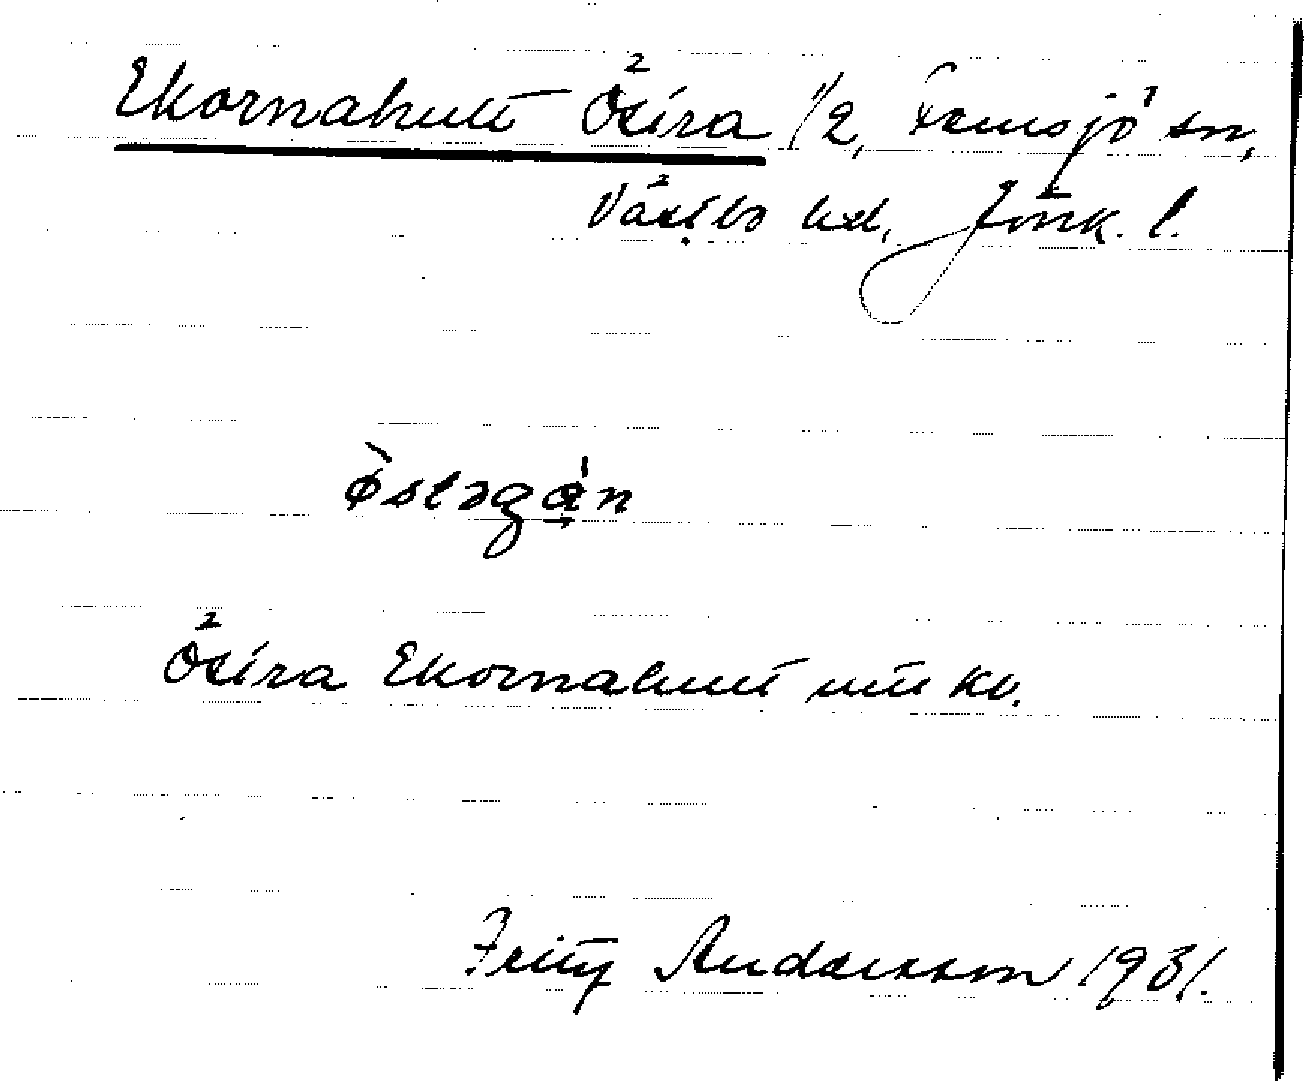 Ekornahult Östra 1/2, Femsjö sn,
Västbo hd, Jönk. l.
Östra Ekornahult mtu kv.
Fritz Andersson 1931.